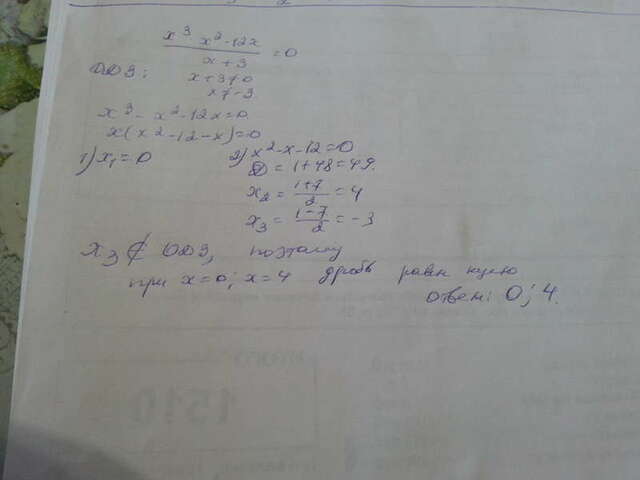 x³ x²-12x
――――― = 0
x+3
ОДЗ: x+3≠0
x≠-3
x³-x²-12x=0
x(x²-12-x)=0
1) x₁=0 2) x²-x-12=0
D=1+48=49.
x₂ = (1+7)/2 = 4
x₃ = (1-7)/2 = -3
x₃ ∉ ОДЗ, поэтому
при x=0; x=4 дробь равн нулю
ответ: 0; 4.
1510